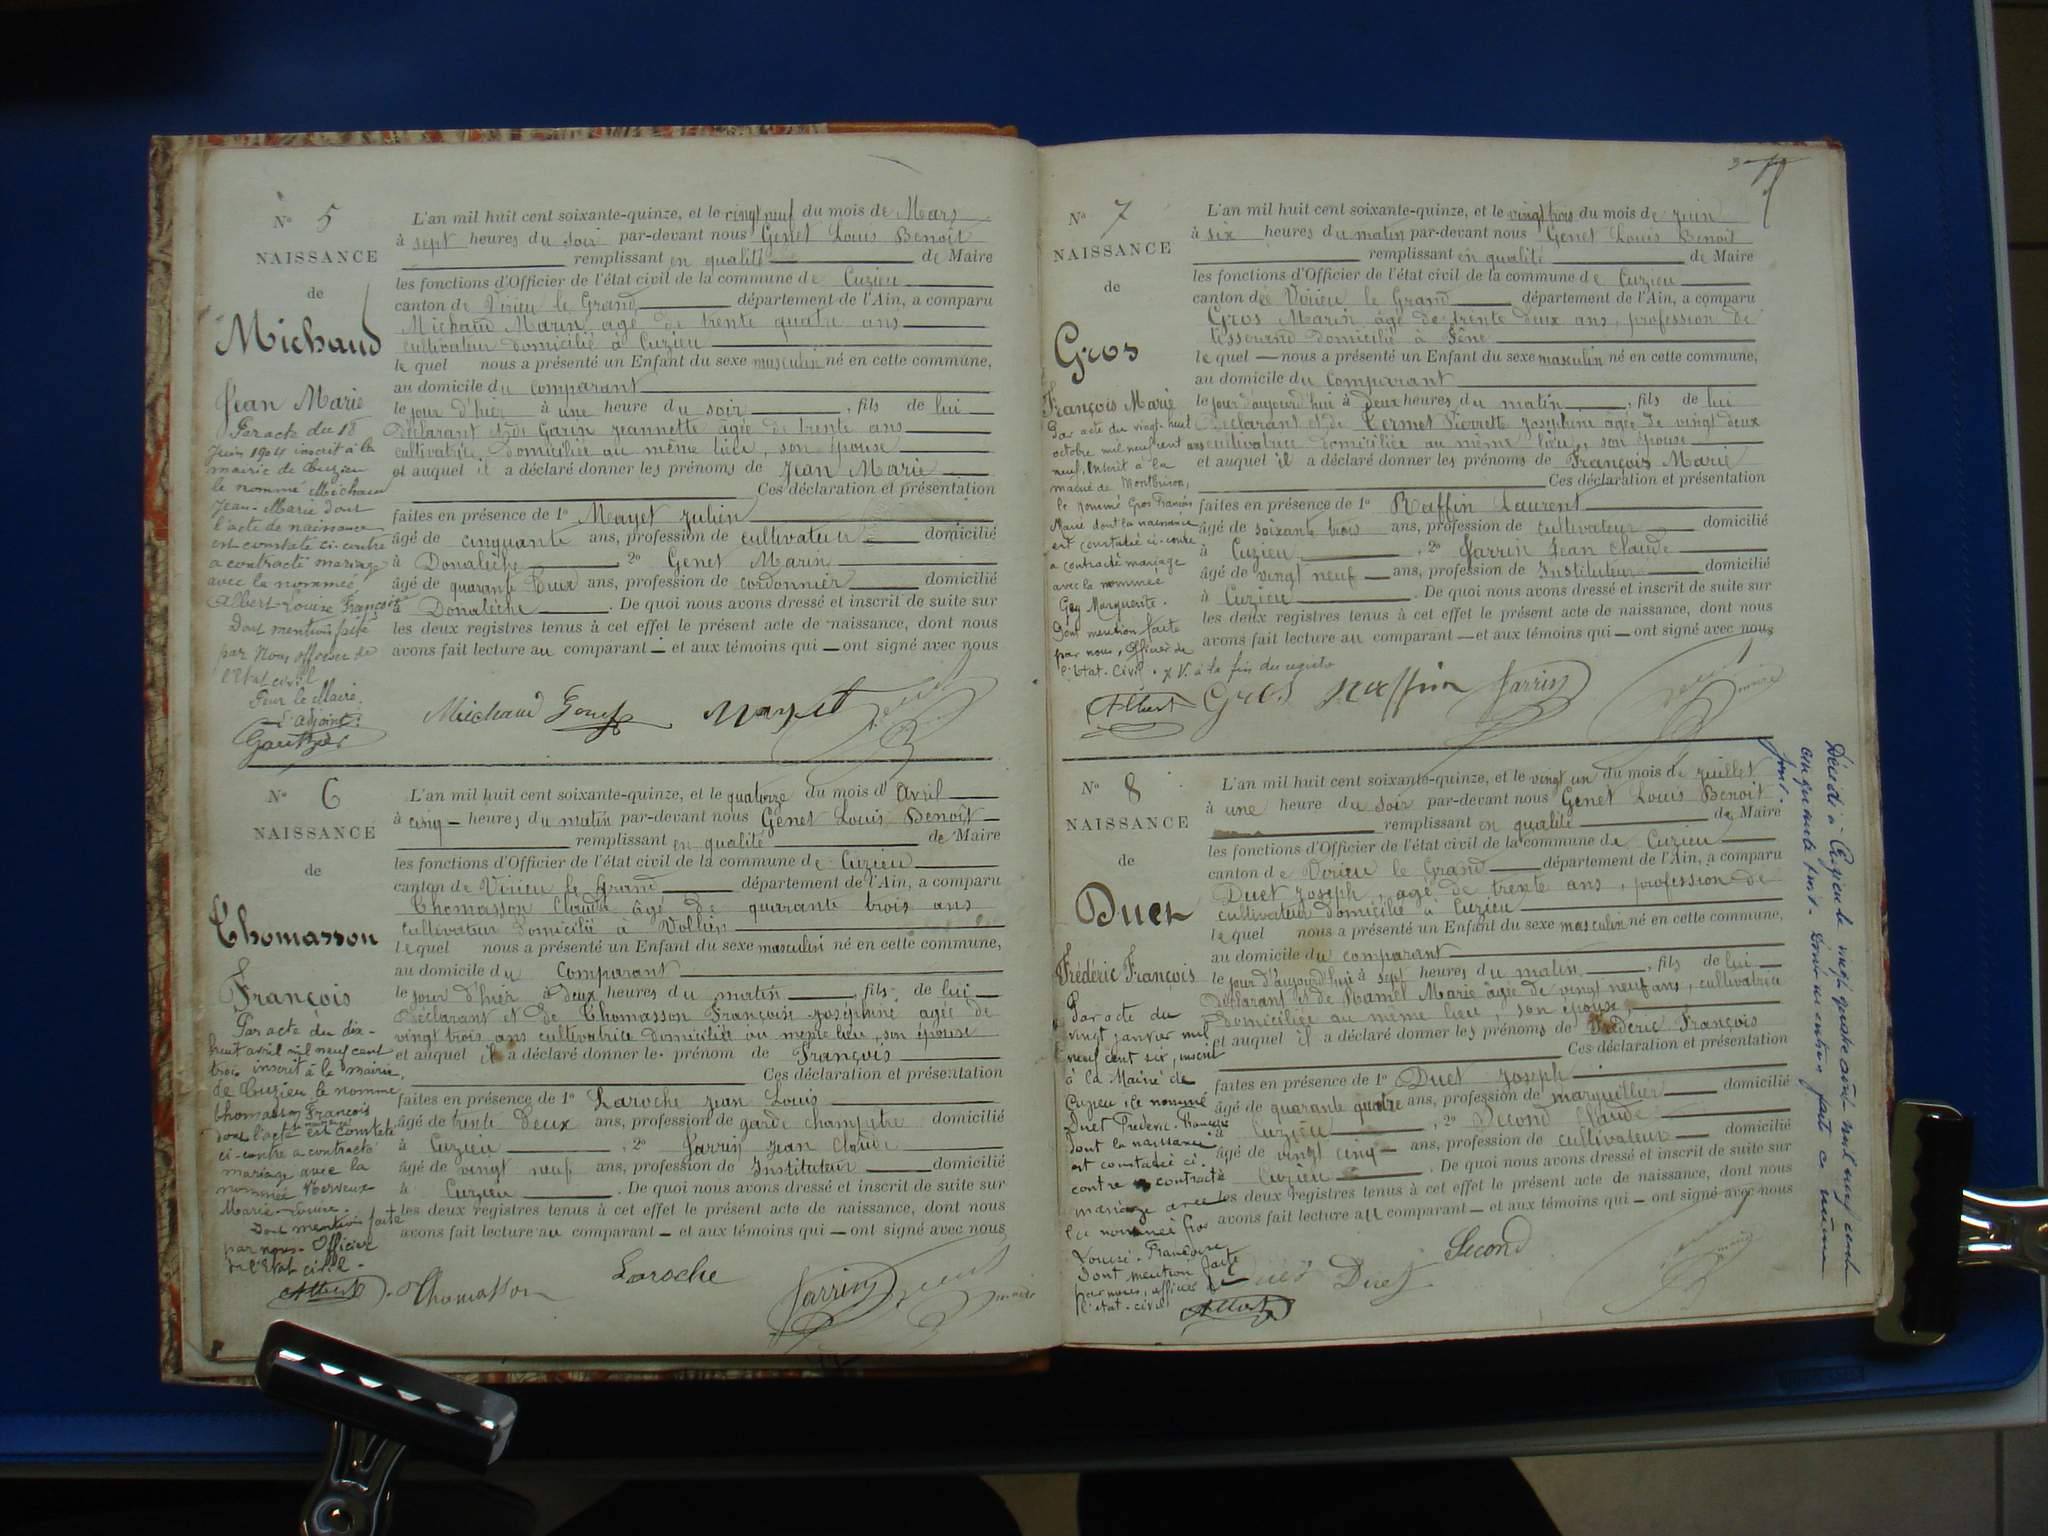 N° 5
NAISSANCE
de
Michaud
Jean Marie
Par acte du 18
Juin 1904 inscrit à la
mairie de Cuzieu
le nommé Michaud
Jean-Marie dont
l'acte de naissance
est constaté ci-contre
a contracté mariage
avec la nommée
Albert Louise Françoise
Dont mention faite
par Nous officier de
l'Etat civil
Pour le Maire
L'adjoint:
L'an mil huit cent soixante-quinze, et le vingt neuf du mois de Mars
à sept heures du soir par-devant nous Genet Louis Benoît
remplissant en qualité de Maire
les fonctions d'Officier de l'état civil de la commune de Cuzieu
canton de Virieu le Grand département de l'Ain, a comparu
Michaud Marin âgé de trente quatre ans
cultivateur domicilié à Cuzieu
le quel nous a présenté un Enfant du sexe masculin né en cette commune,
au domicile du comparant
le jour d'hier à une heure du soir, fils de lui
déclarant et de Garin Jeannette âgée de trente ans
cultivatrice domiciliée au même lieu, son épouse
et auquel il a déclaré donner les prénoms de Jean Marie
Ces déclaration et présentation
faites en présence de 1° Mayet Julien
âgé de cinquante ans, profession de cultivateur domicilié
à Donalèche 2° Genet Marin
âgé de quarante deux ans, profession de cordonnier domicilié
à Donalèche. De quoi nous avons dressé et inscrit de suite sur
les deux registres tenus à cet effet le présent acte de naissance, dont nous
avons fait lecture au comparant — et aux témoins qui — ont signé avec nous
Michaud Genet Mayet
N° 6
NAISSANCE
de
Thomasson
François
Par acte du dix-
huit avril mil neuf cent
trois inscrit à la mairie
de Cuzieu le nommé
Thomasson François
dont l'acte est constaté
ci-contre a contracté
mariage avec la
nommée
Marie-Louise.
Dont mention faite
par nous. Officier
de l'Etat civil.
L'an mil huit cent soixante-quinze, et le quatorze du mois d'Avril
à cinq — heures du matin par-devant nous Genet Louis Benoît
remplissant en qualité de Maire
les fonctions d'Officier de l'état civil de la commune de Cuzieu
canton de Virieu le Grand département de l'Ain, a comparu
Thomasson Claude âgé de quarante trois ans
cultivateur domicilié à Vollien
le quel nous a présenté un Enfant du sexe masculin né en cette commune,
au domicile du comparant
le jour d'hier à deux heures du matin, fils de lui
déclarant et de Thomasson Françoise Joséphine âgée de
vingt trois ans cultivatrice domiciliée au même lieu, son épouse
et auquel il a déclaré donner le prénom de François
Ces déclaration et présentation
faites en présence de 1° Laroche Jean Louis
âgé de trente deux ans, profession de garde champêtre domicilié
à Cuzieu, 2° Jarrin Jean Claude
âgé de vingt neuf ans, profession de Instituteur domicilié
à Cuzieu. De quoi nous avons dressé et inscrit de suite sur
les deux registres tenus à cet effet le présent acte de naissance, dont nous
avons fait lecture au comparant — et aux témoins qui — ont signé avec nous
Thomasson Laroche Jarrin Genet maire
N° 7
NAISSANCE
de
Gros
François Marie
Par acte du vingt huit
octobre mil neuf cent
neuf, inscrit à la
mairie de Montbrison,
le nommé Gros François
Marie dont la naissance
est constatée ci-contre
a contracté mariage
avec la nommée
Gay Marguerite.
Dont mention faite
par nous, Officier de
l'Etat-Civil. x V. à la fin du registre
L'an mil huit cent soixante-quinze, et le vingt trois du mois de Juin
à six heures du matin par-devant nous Genet Louis Benoît
remplissant en qualité de Maire
les fonctions d'Officier de l'état civil de la commune de Cuzieu
canton de Virieu le Grand département de l'Ain, a comparu
Gros Marin âgé de trente deux ans, profession de
tisserand domicilié à
le quel — nous a présenté un Enfant du sexe masculin né en cette commune,
au domicile du Comparant
le jour d'aujourd'hui à deux heures du matin, fils de lui
déclarant et de Termet Pierrette Joséphine âgée de vingt deux
ans cultivatrice domiciliée au même lieu, son épouse
et auquel il a déclaré donner les prénoms de François Marie
Ces déclaration et présentation
faites en présence de 1° Raffin Laurent
âgé de soixante trois ans, profession de cultivateur domicilié
à Cuzieu, 2° Jarrin Jean Claude
âgé de vingt neuf — ans, profession de Instituteur domicilié
à Cuzieu. De quoi nous avons dressé et inscrit de suite sur
les deux registres tenus à cet effet le présent acte de naissance, dont nous
avons fait lecture au comparant — et aux témoins qui — ont signé avec nous
Gros Raffin Jarrin maire
N° 8
NAISSANCE
de
Duet
Frédéric François
Par acte du
vingt janvier mil
neuf cent six, inscrit
à la Mairie de
Cuzieu, le nommé
Duet Frédéric-François
dont la naissance
est constatée ci-
contre a contracté
mariage avec
la nommée Gros
Louise-Françoise
Dont mention faite
par nous, officier de
l'état-civil
L'an mil huit cent soixante-quinze, et le vingt un du mois de Juillet
à une heure du soir par-devant nous Genet Louis Benoît
remplissant en qualité de Maire
les fonctions d'Officier de l'état civil de la commune de Cuzieu
canton de Virieu le Grand département de l'Ain, a comparu
Duet Joseph, âgé de trente ans, profession de
cultivateur domicilié à Cuzieu
le quel nous a présenté un Enfant du sexe masculin né en cette commune,
au domicile du comparant
le jour d'aujourd'hui à sept heures du matin, fils de lui
déclarant et de Hamel Marie âgée de vingt neuf ans, cultivatrice
domiciliée au même lieu, son épouse,
et auquel il a déclaré donner les prénoms de Frédéric François
Ces déclaration et présentation
faites en présence de 1° Duet Joseph
âgé de quarante quatre ans, profession de marguillier domicilié
à Cuzieu, 2° Second Claude
âgé de vingt cinq — ans, profession de cultivateur domicilié
Cuzieu. De quoi nous avons dressé et inscrit de suite sur
les deux registres tenus à cet effet le présent acte de naissance, dont nous
avons fait lecture au comparant — et aux témoins qui — ont signé avec nous
Duet Duet Second maire
Décédé à Cuzieu le vingt quatre août mil neuf cent
cinquante huit. Dont mention faite ce même
jour.